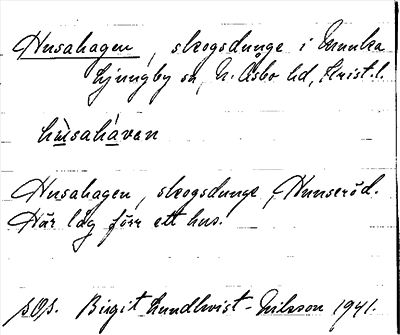 Husahagen, skogsdunge i Munka
Ljungby sn, N. Åsbo hd, Krist. l.
hùsahàvan
Husahagen, skogsdunge, Hunseröd.
Här låg förr ett hus.
Birgit Lundkvist-Nilsson 1941.